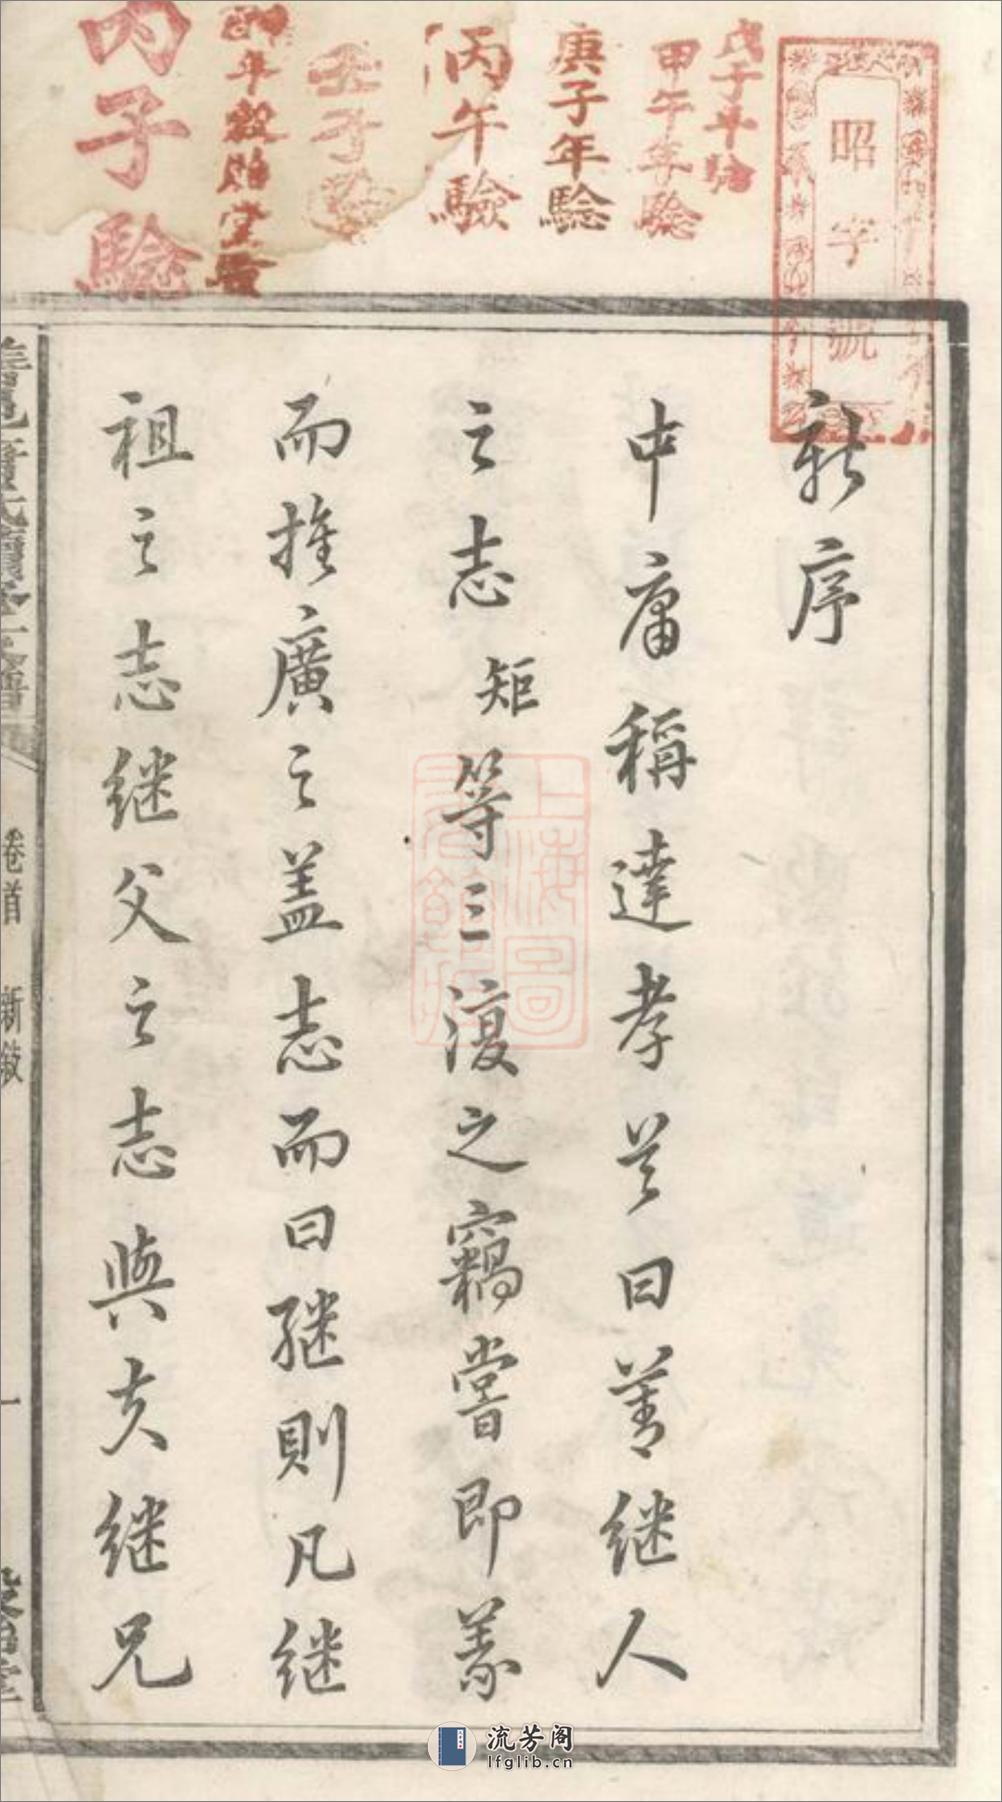 新序
中庸稱達孝首曰善繼人
之志矩等三復之竊嘗即義
而推廣之盖志而曰繼則凡继
祖之志继父之志與夫继兄
昭字號
戊子年驗
甲午年驗
庚子年驗
丙午驗
壬子驗
年穀貽堂
丙子驗
上海圖
卷首 新敍 一
流芳阁
lfglib.cn